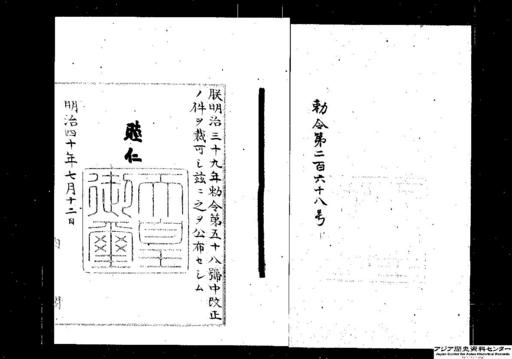 勅令第二百六十八号
朕明治三十九年勅令第五十八號中改正
ノ件ヲ裁可シ茲ニ之ヲ公布セシム
睦仁
天皇御璽
明治四十年七月十二日
アジア歴史資料センター
Japan Center for Asian Historical Records